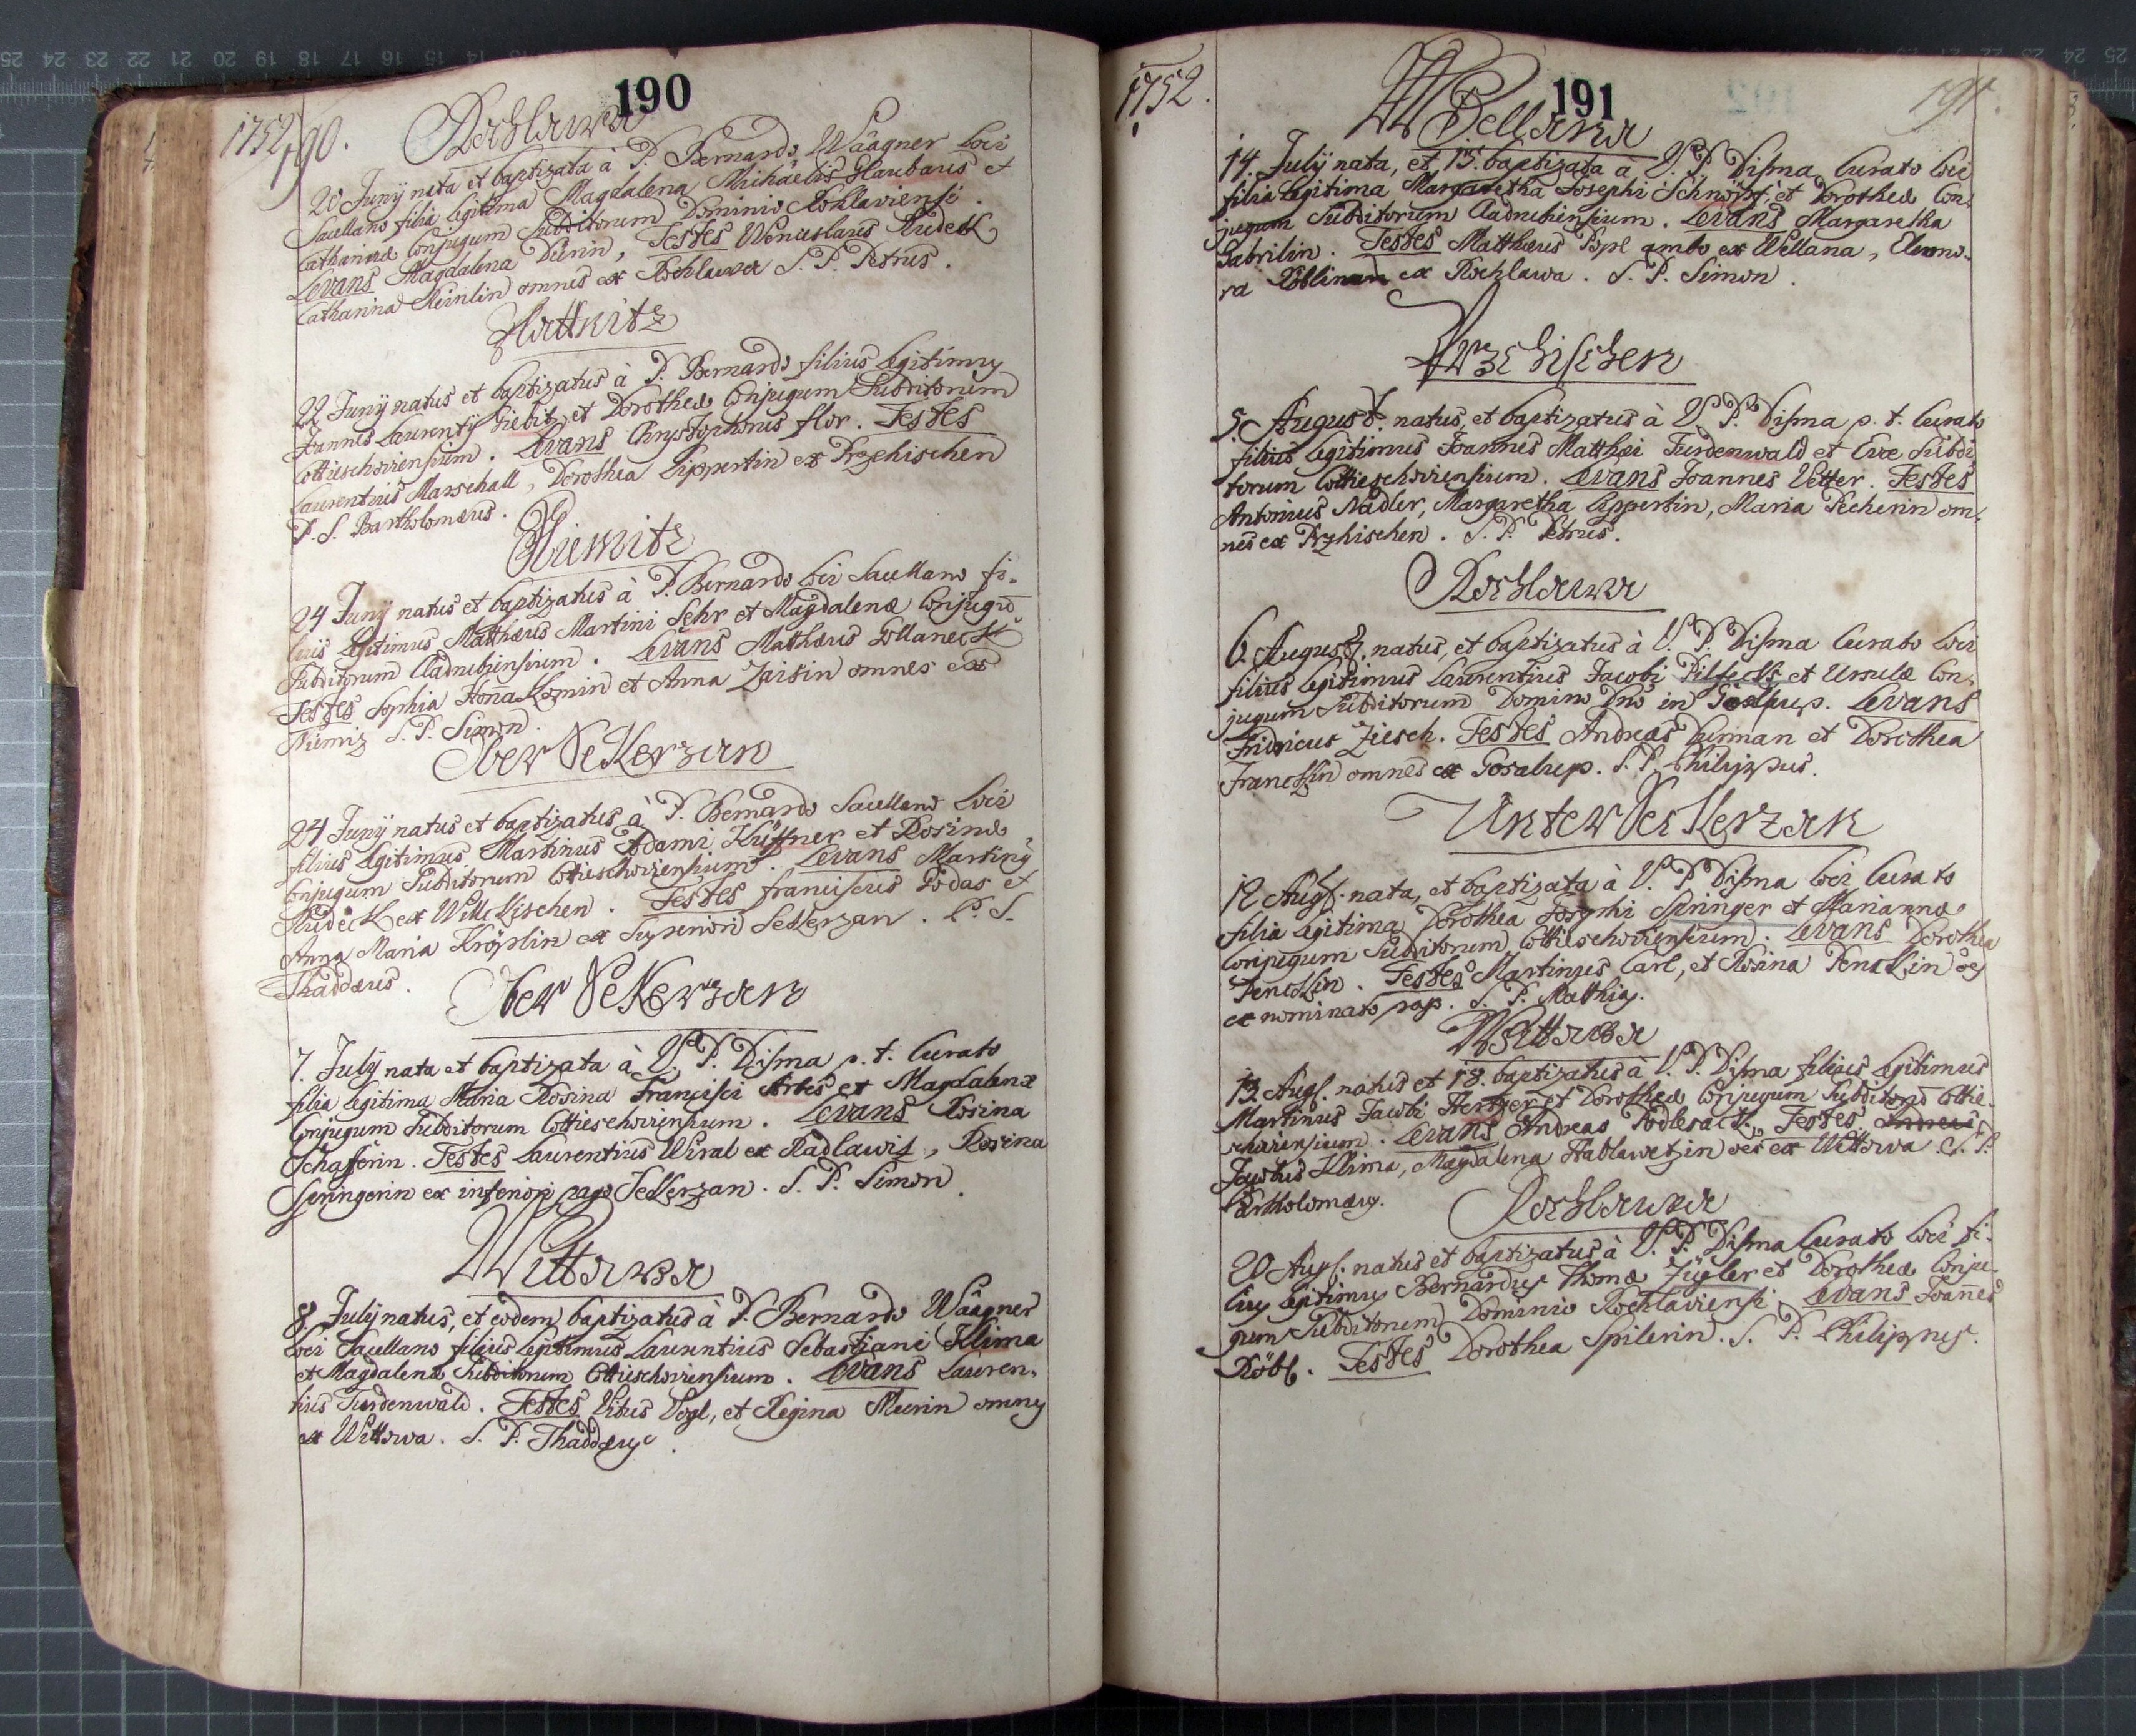 190
1752
190.
Rochlawa
20 Junÿ nata et baptizata à P. Bernardo Wäagner loci
Sacellano filia legitima Magdalena Michaelis Haubaus et
Catharinæ Conjugum Subditorum Dominio Rohlaviensi.
Levans Magdalena Dürin, Testes Wenceslaus Rudeck
Catharina Reinlin omnes ex Rochlawa S. P. Petrus.
Hattnitz
22 Junÿ natus et baptizatus à P. Bernardo filius legitimus
Joannes Laurentÿ Tiebit et Dorotheæ Conjugum Subditorum
Cottieschoviensium. Levans Chrystophorus flor. Testes
Laurentius Marschall, Dorothea Lippertin ex Przehischen
P. S. Bartholomæus.
Niemitz
24 Junÿ natus et baptizatus à P. Bernardo loci Sacellano fi-
lius legitimus Matthæus Martini Sehr et Magdalenæ Conjugū
Subditorum Cladrubiensium. Levans Matthæus
Testes Sophia et Anna Zaisin omnes ex
Niemiz S. P. Simon.
Ober Sekerzan
24 Junÿ natus et baptizatus à P. Bernardo Sacellano loci
filius legitimus Martinus Adami Küffner et Rosinæ
Conjugum Subditorum Cottieschoviensium. Levans Martinÿ
Rudeck ex Wilkischen. Testes franciscus Godas et
Anna Maria Kröjslin ex Superiori Sekerzan. P. S.
Thaddæus.
Ober Sekerzan
7. Julÿ nata et baptizata à V. P. Disma p. t. Curato
filia legitima Maria Rosina Francisci Arbes et Magdalenæ
Conjugum Subditorum Cottieschoviensium. Levans Rosina
Schafferin. Testes Laurentius Wiral ex Radlawit, Rosina
Springerin ex inferiori pago Sekerzan. S. P. Simon.
Wittawa
8 Julÿ natus, et eodem baptizatus à P. Bernardo Wäagner
loci Sacellano filius legitimus Laurentius Sebastiani Klima
et Magdalenæ Subditorum Cottieschoviensium. Levans Lauren-
tius Turdenwald. Testes Vitus Vogl, et Regina Meerin omnes
ex Wittowa. S. P. Thaddæus.
1752.
191
191.
Wellana
14. Julÿ nata, et 15. baptizata à V. P. Disma Curato loci
filia legitima Margaretha Josephi Schnöpf, et Dorotheæ Con-
jugum Subditorum Cladrubiensium. Levans Margaretha
Gabrilin. Testes Matthæus Popl ambo ex Wellana, Eleono-
ra ex Rochlawa. S. P. Simon.
Przehischen
5. August. natus, et baptizatus à V. P. Disma p. t. Curato
filius legitimus Joannes Matthæi Turdenwald et Evæ Subdi
torum Cottieschoviensium. Levans Joannes Vetter. Testes
Antonius Nadler, Margaretha Lippertin, Maria Pecherin om-
nes ex Przhischen. S. P. Petrus.
Rochlawa
6. August. natus, et baptizatus à V. P. Disma Curato loci
filius legitimus Laurentius Jacobi et Ursulæ Con-
jugum Subditorum Domino Dno in. Levans
Fridricus Ziesch. Testes Andreas et Dorothea
Francklin omnes ex. S. P. Philippus.
Unter Sekerzan
12 Aug. nata, et baptizata à V. P. Disma loci Curato
filia legitima Dorothea Josephi Springer et Mariannæ
Conjugum Subditorum Cottieschoviensium. Levans Dorothea
Fencklin. Testes Martinus Carl, et Rosina oes
ex nominato pag. S. P. Mathias.
Wittawa
13 Aug. natus et 18. baptizatus à V. P. Disma filius legitimus
Martinus Jacobi Hertzer et Dorotheæ Conjugum Subditorū Cottie-
schoviensium. Levans Andreas Podlesack, Testes. Andreas
Jacobus Klima, Magdalena Hablawetzin oes ex Wittowa. S. P.
Bartholomæus.
Rochlawa
20 Aug. natus et baptizatus à V. P. Disma Curato loci fi-
lius legitimus Bernardus Thomæ Zügler et Dorotheæ Conju-
gum Subditorum Dominio Rochlaviensi. Levans Joañes
Röbl. Testes Dorothea Spilerin. S. P. Philippus.